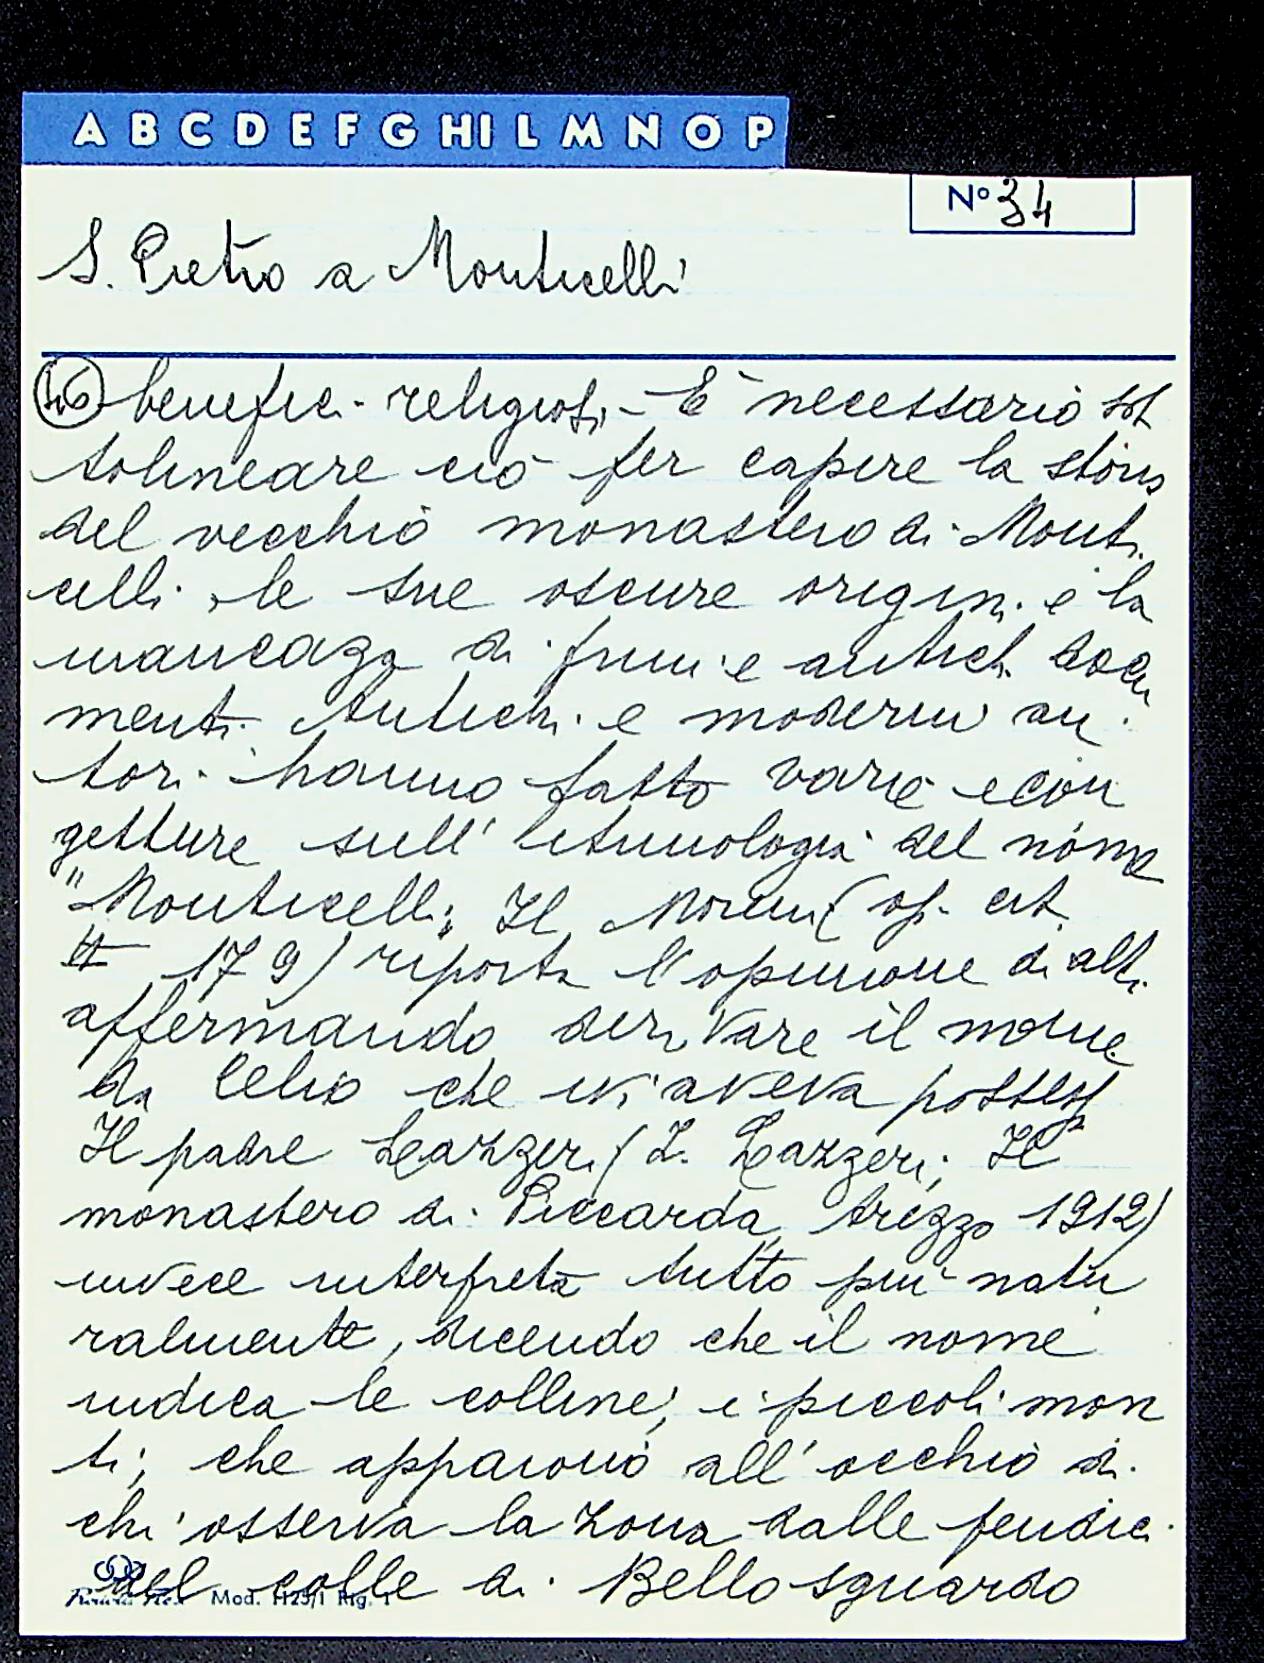 A B C D E F G HI L M N O P
Nº 34
S. Pietro a Monticelli
46 benefici religiosi - È necessario sot
tolineare ciò per capire la storia
del vecchio monastero di Monti
celli, le sue oscure origini e la
mancaza di primi e antichi docu
menti. Antichi e moderni au
tori hanno fatto varie econ
getture sull'etimologia del nome
"Monticelli". Il Moreni (op. cit.
II 179) riporta l'opinione di altri
affermando derivare il nome
da Celio che ivi aveva possessi
Il padre Lazzeri (Z. Lazzeri; Il
monastero di Piccarda, Arezzo 1912)
invece interpreta tutto più natu
ralmente, dicendo che il nome
indica le colline, i piccoli mon
ti, che appaiono all'occhio di
chi osserva la zona dalle pendici
del colle di Bellosguardo
Mod. H25/1 Rig. 1